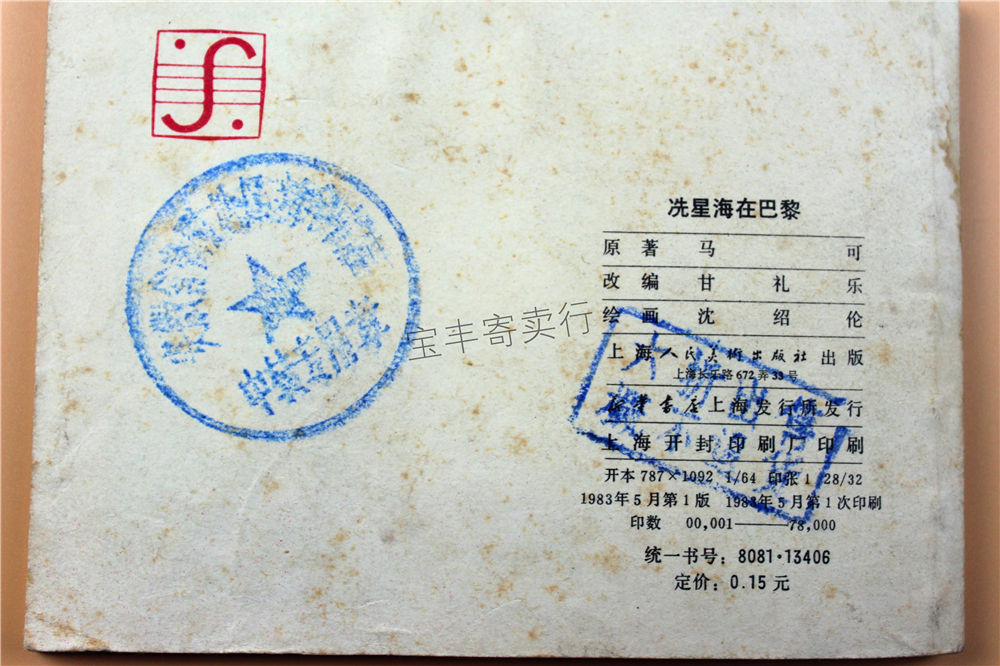 冼星海在巴黎
原著 马可
改编 甘礼乐
绘画 沈绍伦
上海人民美术出版社出版
上海长乐路672弄33号
新华书店上海发行所发行
上海开封印刷厂印刷
开本 787×1092 1/64 印张 1 28/32
1983年5月第1版 1983年5月第1次印刷
印数 00,001——78,000
统一书号：8081·13406
定价：0.15元
宝丰寄卖行